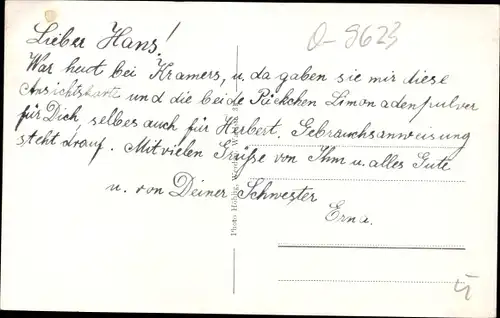 Lieber Hans!
O-9623
War heut bei Kramers, u. da gaben sie mir diese
Ansichtskarte und die beide Päckchen Limonadenpulver
für Dich selbes auch für Herbert. Gebrauchsanweisung
steht drauf. Mit vielen Grüsse von Ihm u. alles Gute
u. von Deiner Schwester
Erna.
Photo